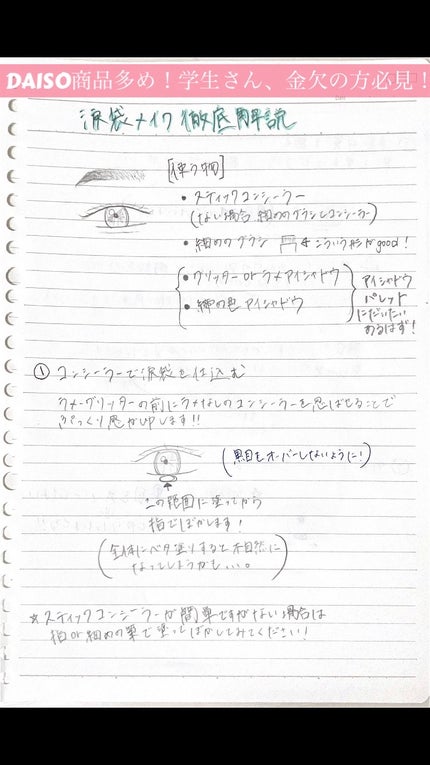 DAISO商品多め！学生さん、金欠の方必見！
涙袋メイク徹底解説
[使う物]
• スティックコンシーラー
(ない場合 細めのブラシとコンシーラー)
• 細めのブラシ ← こういう形がgood！
• グリッター or ラメアイシャドウ
• 締め色アイシャドウ
アイシャドウ
パレット
にだいたい
あるはず！
① コンシーラーで涙袋を仕込む
ラメ・グリッターの前にラメなしのコンシーラーを忍ばせることで
ぷっくり感がUPします!!
(黒目をオーバーしないように！)
この範囲に塗ってから
指でぼかします！
(全体にベタ塗りすると不自然に
なってしまうかも...。)
☆スティックコンシーラーが簡単ですがない場合は
指or細めの筆で塗ってぼかしてみてください！